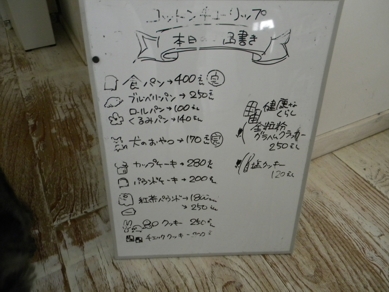 コットンチューリップ
本日の品書き
食パン→400えん 完
ブルーベリーパン→250えん
ロールパン→100えん
くるみパン→140えん
犬のおやつ→170えん 完
カップケーキ→280えん
パウンドケーキ→200えん
紅茶パウンド→180えん
→250えん
クッキー 250えん
チェッククッキー
健康な
くらし
全粒粉
グラハムクラッカー
250えん
塩クッキー
120えん